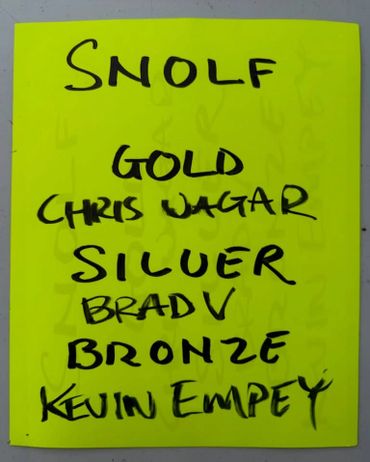 SNOLF
GOLD
CHRIS JAGAR
SILVER
BRAD V
BRONZE
KEVIN EMPEY